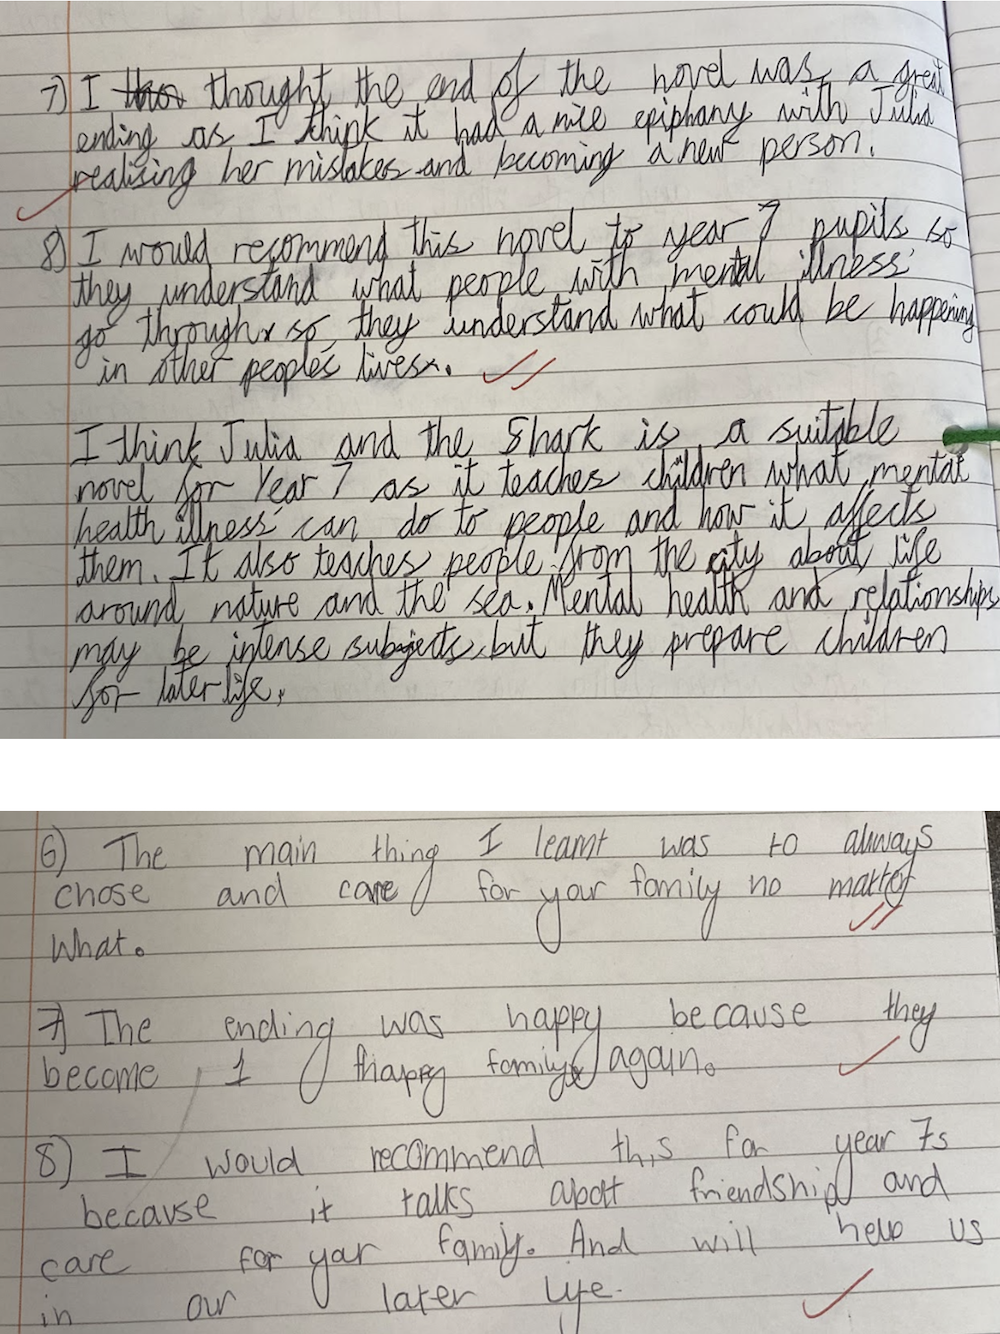 7) I thought the end of the novel was a great
ending as I think it had a nice epiphany with Julia
realising her mistakes and becoming a new person.
8) I would recommend this novel to year 7 pupils so
they understand what people with mental illness
go through so they understand what could be happening
in other people's lives.
I think Julia and the Shark is a suitable
novel for Year 7 as it teaches children what mental
health illness can do to people and how it affects
them. It also teaches people from the city about life
around nature and the sea. Mental health and relationships
may be intense subjects, but they prepare children
for later life.
6) The main thing I learnt was to always
chose and care for your family no matter
what.
7) The ending was happy because they
become 1 happy family again.
8) I would recommend this for year 7s
because it talks about friendship and
care for your family. And will help us
in our later life.